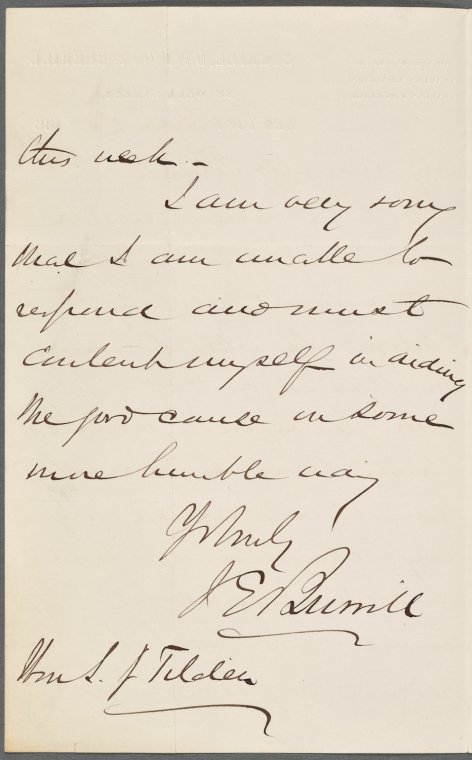 this week -
I am very sorry
that I am unable to
respond and must
content myself in aiding
the good cause in some
more humble way
Yr truly
J E Burrill
Hon S. J Tilden